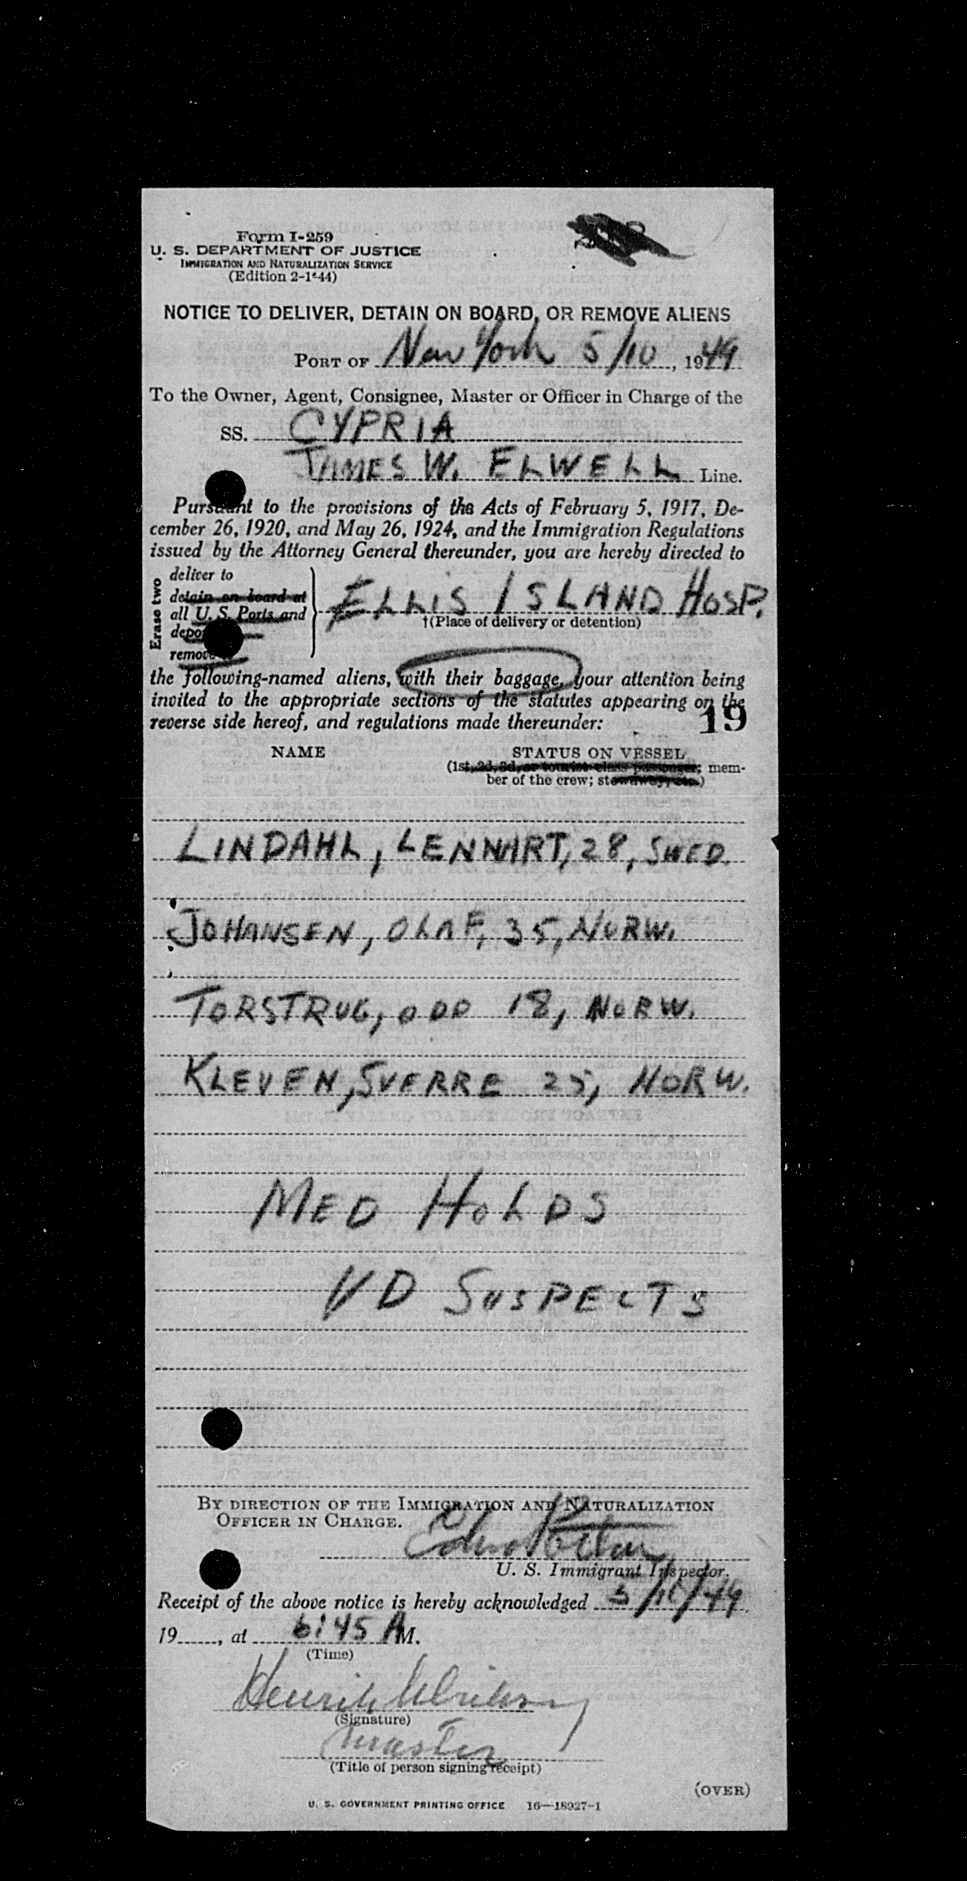 Form I-259
U. S. DEPARTMENT OF JUSTICE
IMMIGRATION AND NATURALIZATION SERVICE
(Edition 2-1-44)
NOTICE TO DELIVER, DETAIN ON BOARD, OR REMOVE ALIENS
PORT OF New York 5/10, 1949
To the Owner, Agent, Consignee, Master or Officer in Charge of the
SS. CYPRIA
JAMES W. ELWELL Line.
Pursuant to the provisions of the Acts of February 5, 1917, De-
cember 26, 1920, and May 26, 1924, and the Immigration Regulations
issued by the Attorney General thereunder, you are hereby directed to
Erase two
deliver to
detain on board at
all U. S. Ports and
remove
ELLIS ISLAND HOSP.
†(Place of delivery or detention)
the following-named aliens, with their baggage, your attention being
invited to the appropriate sections of the statutes appearing on the
reverse side hereof, and regulations made thereunder:
19
NAME STATUS ON VESSEL
(1st, 2d, 3d, or tourist class passenger; mem-
ber of the crew; stowaway, etc.)
LINDAHL, LENNART, 28, SWED.
JOHANSEN, OLAF, 35, NORW.
TORSTRUG, ODD 18, NORW.
KLEVEN, SVERRE 25, NORW.
MED HOLDS
VD SUSPECTS
BY DIRECTION OF THE IMMIGRATION AND NATURALIZATION
OFFICER IN CHARGE.
U. S. Immigrant Inspector.
Receipt of the above notice is hereby acknowledged 5/10/49
19____, at 6:45 AM.
(Time)
Henrik
(Signature)
Master
(Title of person signing receipt)
(OVER)
U. S. GOVERNMENT PRINTING OFFICE 16—18927-1